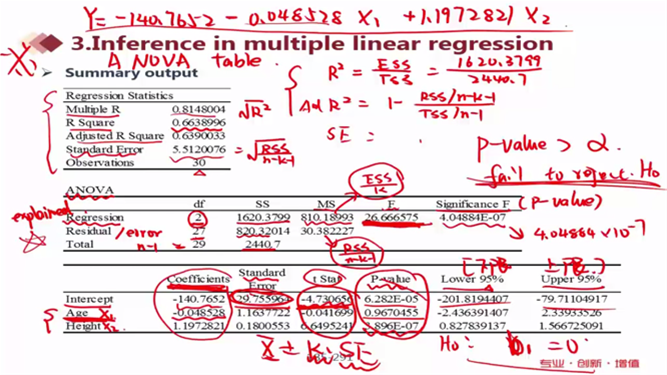 Y = -140.7652 - 0.048528 X₁ + 1.1972821 X₂
3.Inference in multiple linear regression
-X₁
ANOVA table.
Summary output
R² = ESS/TSS = 1620.3799/2440.7
Adj R² = 1 - RSS/n-k-1 / TSS/n-1
SE =
P-value > α.
fail to reject. H₀
Regression Statistics
Multiple R 0.8148004 √R²
R Square 0.6638996
Adjusted R Square 0.6390033
Standard Error 5.5120076 = √RSS/n-k-1
Observations 30
ESS/k
ANOVA
df SS MS F Significance F (P-value)
explained
Regression 2 1620.3799 810.18993 26.666575 4.04884E-07
Residual /error 27 820.32014 30.382227
↘ 4.04884×10⁻⁷
n-1 = Total 29 2440.7
RSS/n-k-1
[下限 上限.]
Coefficients Standard Error t Stat P-value Lower 95% Upper 95%
Intercept -140.7652 29.755964 -4.730656 6.282E-05 -201.8194407 -79.71104917
Age X₁ -0.048528 1.1637722 -0.041699 0.9670455 -2.436391407 2.33933526
Height X₂ 1.1972821 0.1800553 6.6495241 3.896E-07 0.827839137 1.566725091
X̄ ± K·SE
H₀: b₁ = 0
/291
专业·创新·增值